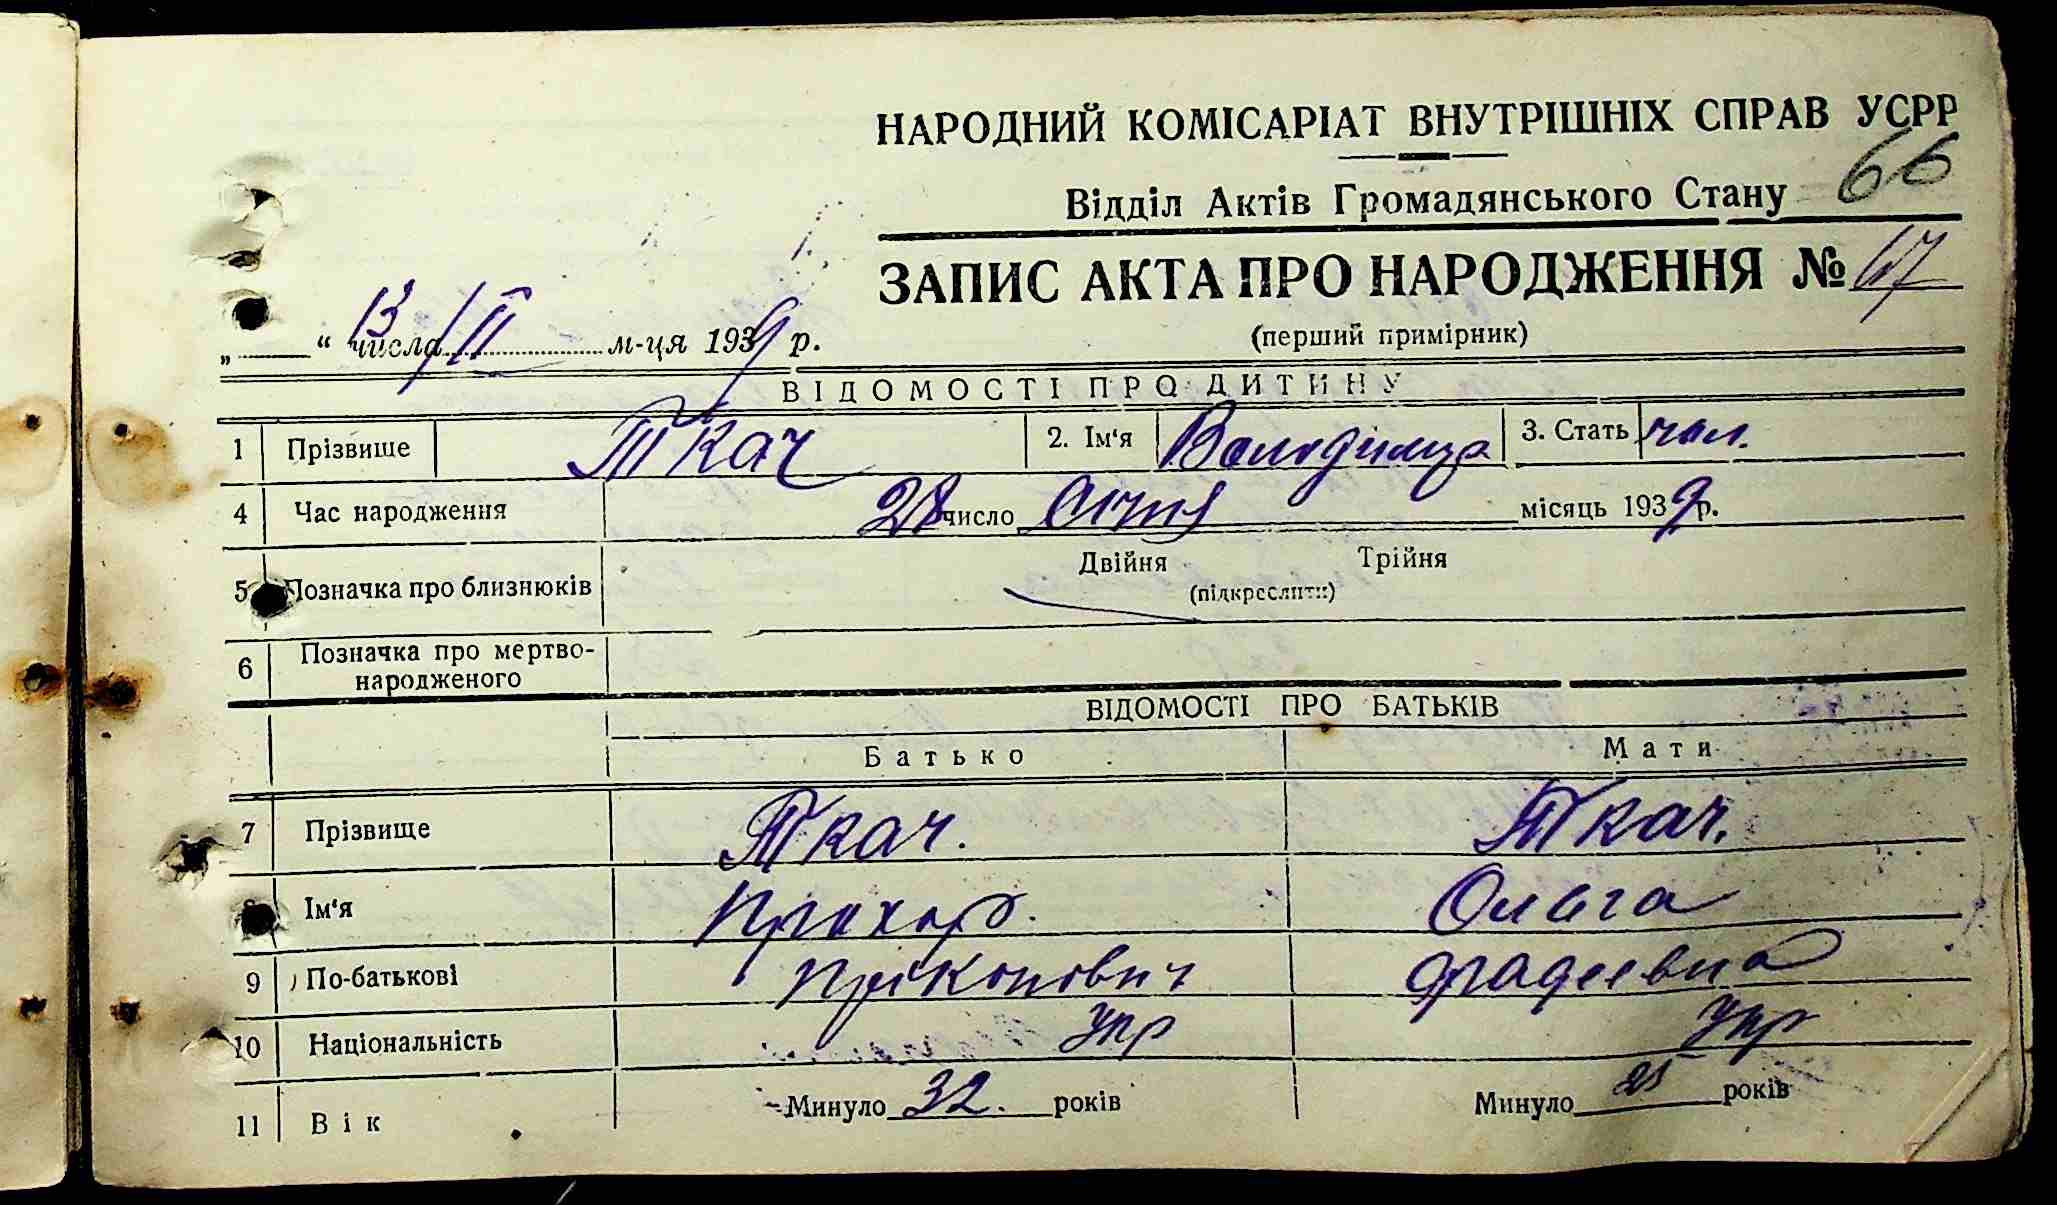 НАРОДНИЙ КОМІСАРІАТ ВНУТРІШНІХ СПРАВ УСРР
66
Відділ Актів Громадянського Стану
ЗАПИС АКТА ПРО НАРОДЖЕННЯ № 67
(перший примірник)
„ “ 13 числа / II м-ця 1939 р.
ВІДОМОСТІ ПРО ДИТИНУ
1 Прізвище Ткач 2. Ім‘я 3. Стать чол.
4 Час народження 28 число Січня місяць 1939 р.
5 Позначка про близнюків Двійня Трійня
(підкреслити)
6 Позначка про мертво-
народженого
ВІДОМОСТІ ПРО БАТЬКІВ
Батько Мати
7 Прізвище Ткач. Ткач.
8 Ім‘я Прохор. Ольга
9 По-батькові Прокопович Фадеевна
10 Національність Укр Укр
11 Вік Минуло 32. років Минуло років